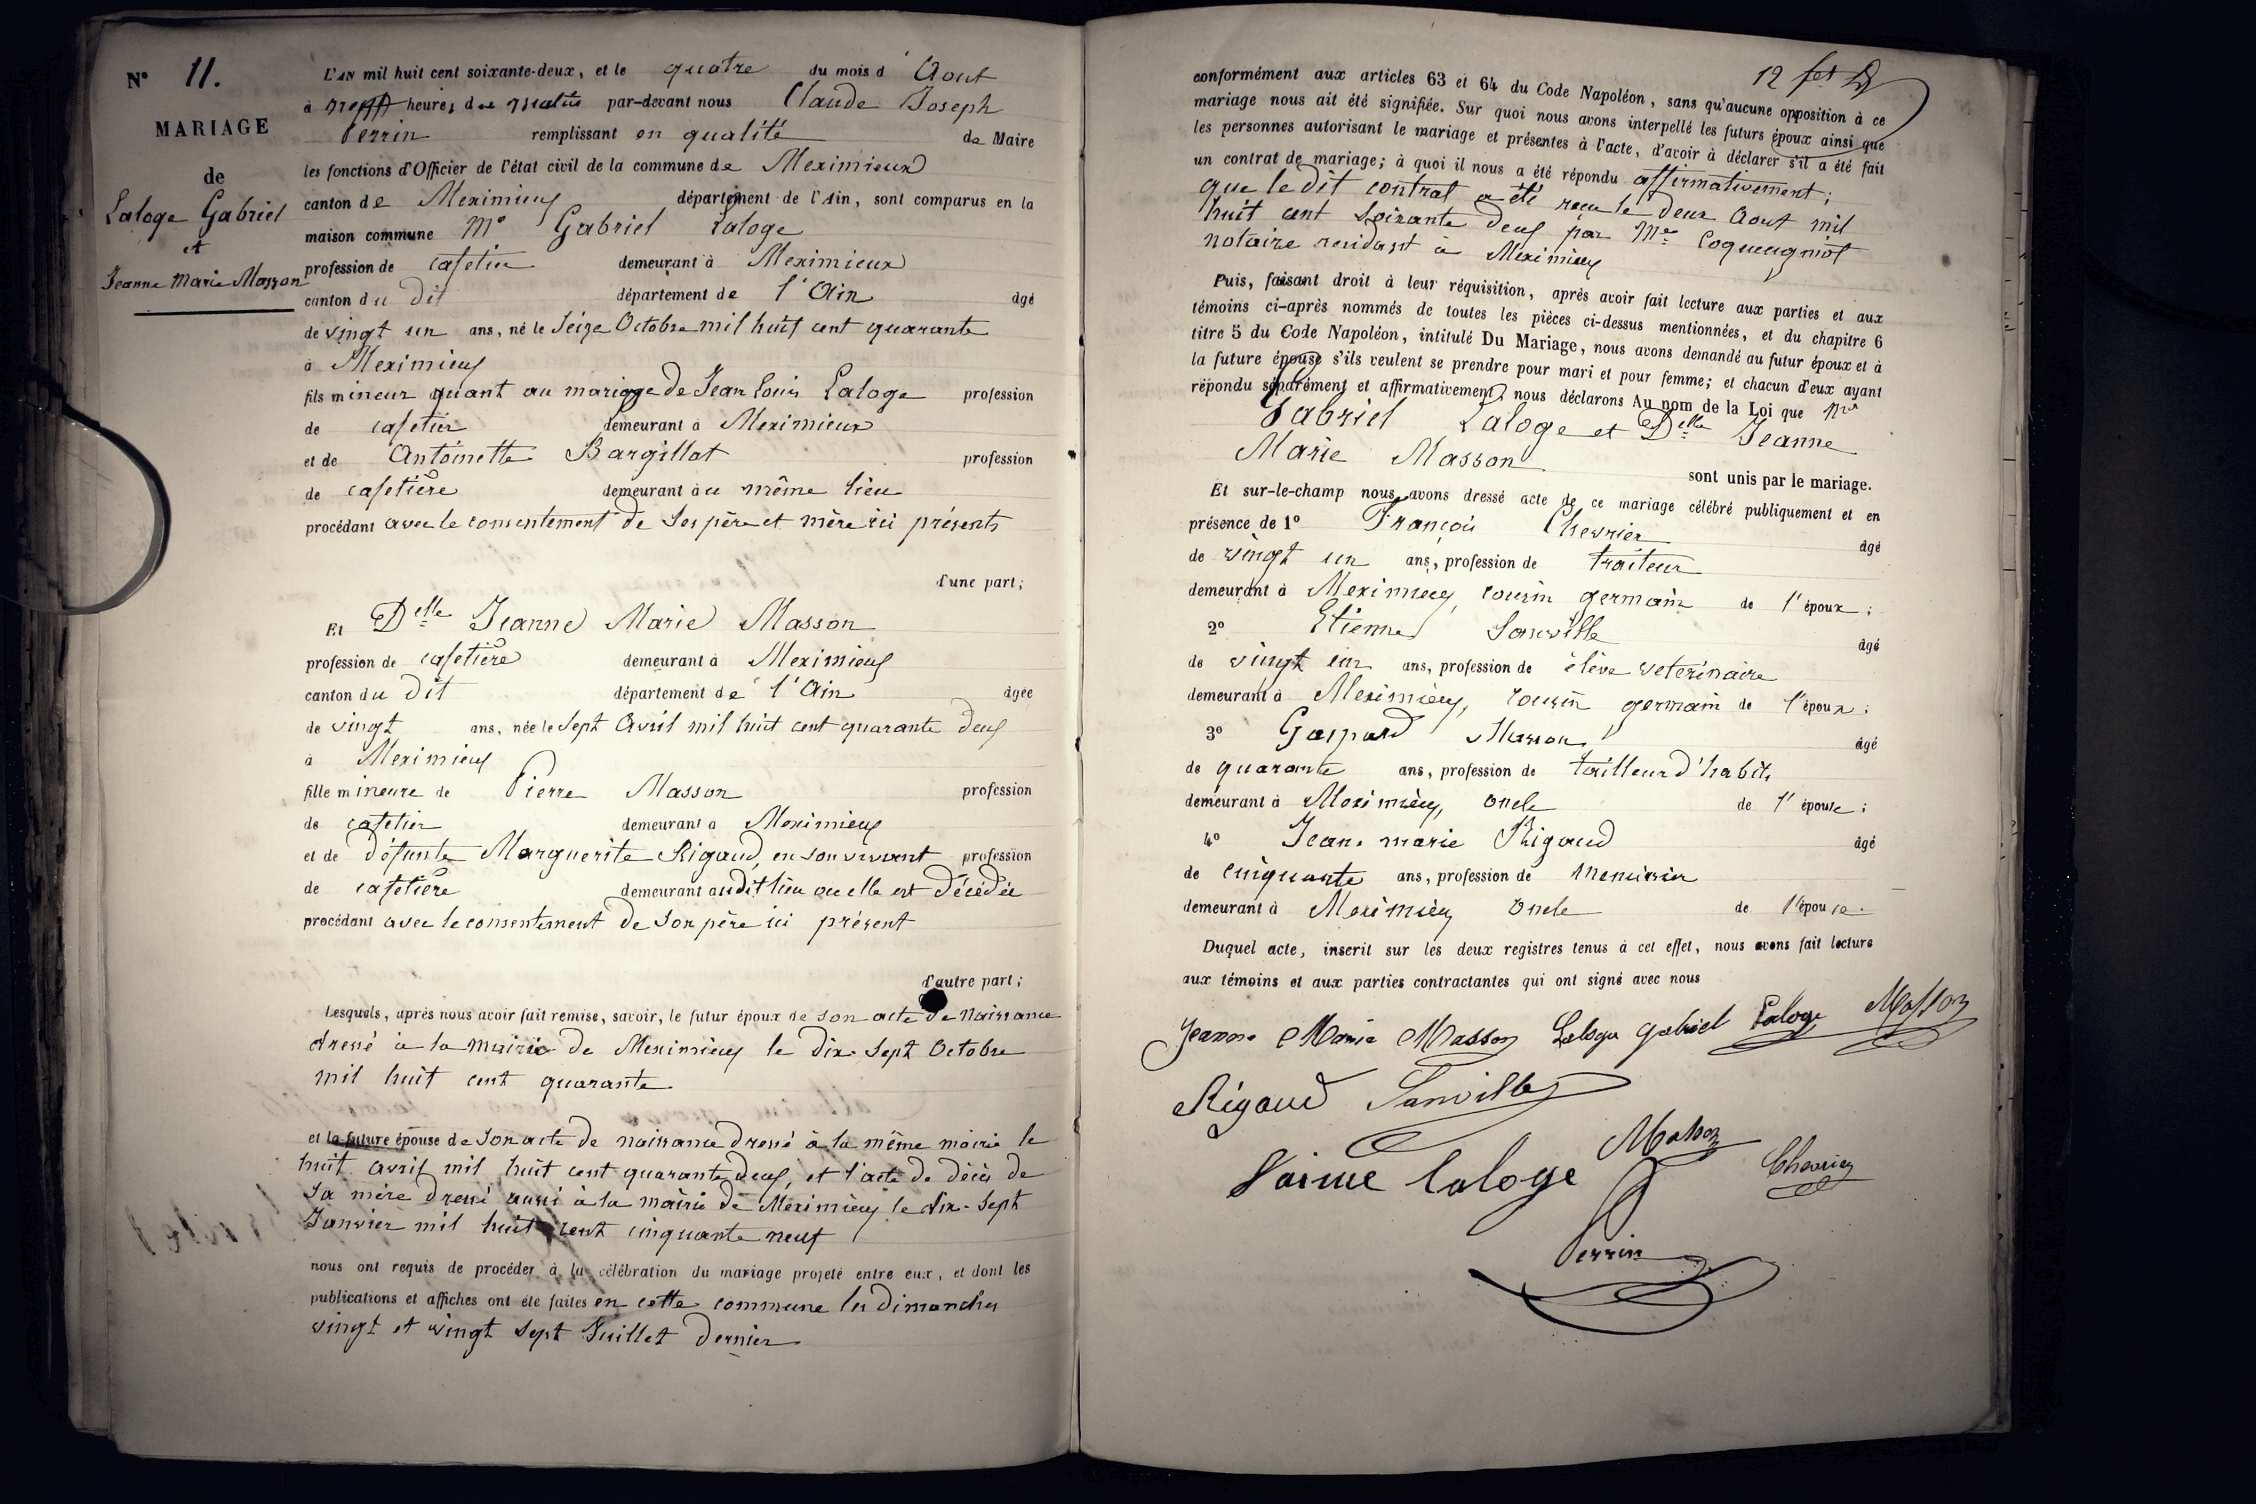 N° 11.
MARIAGE
de
Laloge Gabriel
et
Jeanne Marie Masson
L'AN mil huit cent soixante-deux, et le quatre du mois d'Aout
à neuf heures du matin par-devant nous Claude Joseph
Perrin remplissant en qualité de Maire
les fonctions d'Officier de l'état civil de la commune de Meximieux
canton de Meximieux département de l'Ain, sont comparus en la
maison commune Mr Gabriel Laloge
profession de cafetier demeurant à Meximieux
canton du dit département de l'Ain âgé
de vingt un ans, né le seize Octobre mil huit cent quarante
à Meximieux
fils mineur quant au mariage de Jean Louis Laloge profession
de cafetier demeurant à Meximieux
et de Antoinette Bargillat profession
de cafetière demeurant au même lieu
procédant avec le consentement de ses père et mère ici présents
d'une part;
Et Delle Jeanne Marie Masson
profession de cafetière demeurant à Meximieux
canton du dit département de l'Ain âgée
de vingt ans, née le sept Avril mil huit cent quarante deux
à Meximieux
fille mineure de Pierre Masson profession
de cafetier demeurant à Meximieux
et de défunte Marguerite Rigaud, en son vivant profession
de cafetière demeurant audit lieu ou elle est décédée
procédant avec le consentement de son père ici présent
d'autre part;
Lesquels, après nous avoir fait remise, savoir, le futur époux de son acte de Naissance
dressé à la mairie de Meximieux le dix-sept Octobre
mil huit cent quarante
et la future épouse de son acte de naissance dressé à la même mairie le
huit avril mil huit cent quarante deux, et l'acte de décès de
sa mère dressé aussi à la mairie de Meximieux le dix-sept
Janvier mil huit cent cinquante neuf
nous ont requis de procéder à la célébration du mariage projeté entre eux, et dont les
publications et affiches ont été faites en cette commune les Dimanches
vingt et vingt sept Juillet dernier
12 fet
conformément aux articles 63 et 64 du Code Napoléon, sans qu'aucune opposition à ce
mariage nous ait été signifiée. Sur quoi nous avons interpellé les futurs époux ainsi que
les personnes autorisant le mariage et présentes à l'acte, d'avoir à déclarer s'il a été fait
un contrat de mariage; à quoi il nous a été répondu affirmativement;
que le dit contrat a été reçu le deux Aout mil
huit cent soixante deux par Me Coqueugniot
notaire residant à Meximieux
Puis, faisant droit à leur réquisition, après avoir fait lecture aux parties et aux
témoins ci-après nommés de toutes les pièces ci-dessus mentionnées, et du chapitre 6
titre 5 du Code Napoléon, intitulé Du Mariage, nous avons demandé au futur époux et à
la future épouse s'ils veulent se prendre pour mari et pour femme; et chacun d'eux ayant
répondu séparément et affirmativement, nous déclarons Au nom de la Loi que Mr
Gabriel Laloge et Delle Jeanne
Marie Masson
sont unis par le mariage.
Et sur-le-champ nous avons dressé acte de ce mariage célébré publiquement et en
présence de 1° François Chevrier âgé
de vingt un ans, profession de traiteur
demeurant à Meximieux, cousin germain de l'époux;
2° Etienne Sanville âgé
de vingt un ans, profession de élève veterinaire
demeurant à Meximieux, cousin germain de l'époux;
3° Gaspard Masson âgé
de quarante ans, profession de tailleur d'habits
demeurant à Meximieux, oncle de l'épouse;
4° Jean-marie Rigaud âgé
de cinquante ans, profession de menuisier
demeurant à Meximieux oncle de l'épouse.
Duquel acte, inscrit sur les deux registres tenus à cet effet, nous avons fait lecture
aux témoins et aux parties contractantes qui ont signé avec nous
Jeanne Marie Masson Laloge gabriel Laloge Masson
Rigaud Sanville
Masson
Chevrier
laloge
Perrin